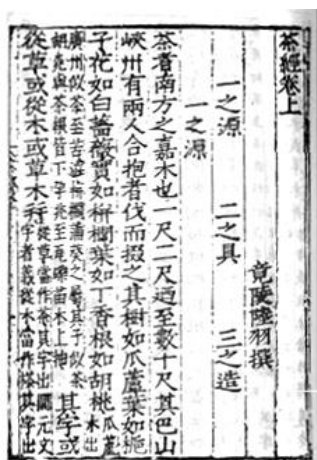 茶經卷上
竟陵陸羽撰
一之源 二之具 三之造
一之源
茶者南方之嘉木也一尺二尺迺至數十尺其巴山
峽州有兩人合抱者伐而掇之其樹如瓜蘆葉如梔
子花如白薔薇實如栟櫚葉如丁香根如胡桃 瓜蘆木出
廣州似茶至苦澁栟櫚蒲葵之屬其子似茶
胡桃與茶根皆下孕兆至瓦礫苗木上抽 其字或
從草或從木或草木并 從草當作茶其字出開元文
字者義從木當作搽其字出